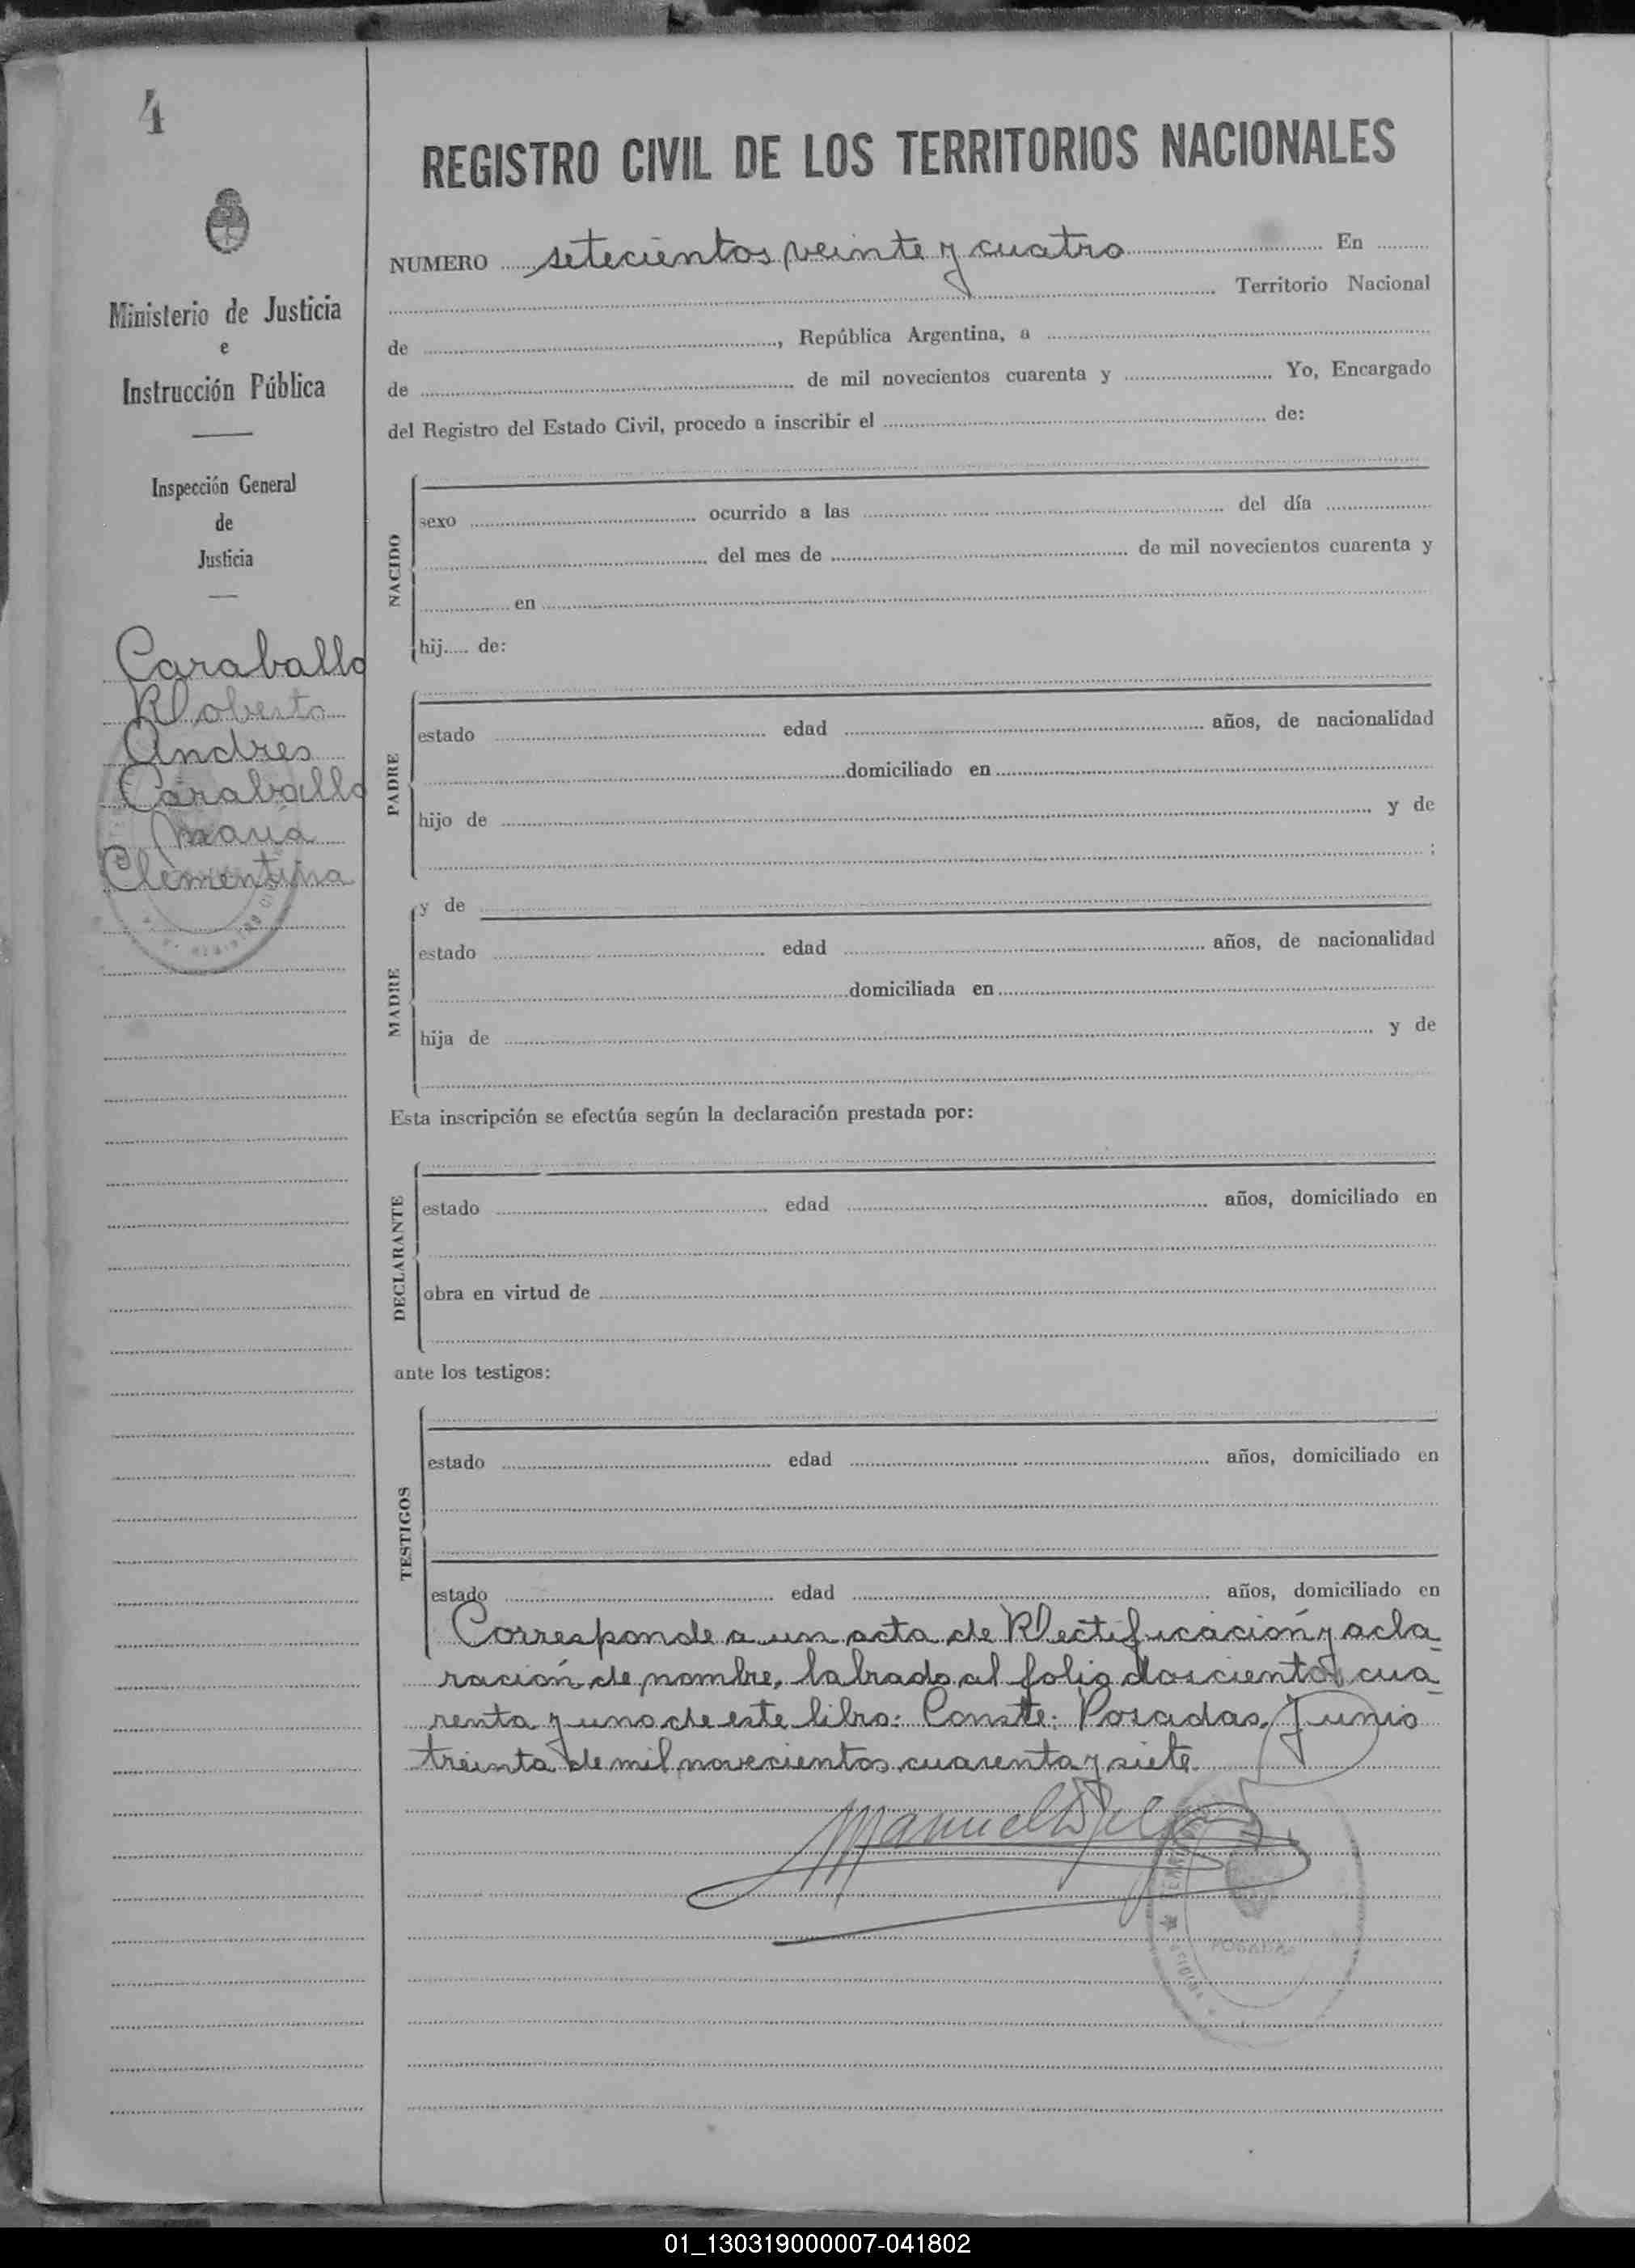 4
Ministerio de Justicia
e
Instrucción Pública
Inspección General
de
Justicia
Caraballo
Roberto
Andres
Caraballo
Maria
Clementina
REGISTRO CIVIL DE LOS TERRITORIOS NACIONALES
NUMERO setecientos veinte y cuatro En
Territorio Nacional
de , República Argentina, a
de de mil novecientos cuarenta y Yo, Encargado
del Registro del Estado Civil, procedo a inscribir el de:
NACIDO
sexo ocurrido a las del día
del mes de de mil novecientos cuarenta y
en
hij..... de:
PADRE
estado edad años, de nacionalidad
domiciliado en
hijo de y de
;
MADRE
y de
estado edad años, de nacionalidad
domiciliada en
hija de y de
Esta inscripción se efectúa según la declaración prestada por:
DECLARANTE
estado edad años, domiciliado en
obra en virtud de
ante los testigos:
TESTIGOS
estado edad años, domiciliado en
estado edad años, domiciliado en
Corresponde a un acta de Rectificación y acla-
ración de nombre, labrado al folio doscientos cua-
renta y uno de este libro: Conste: Posadas, Junio
treinta de mil novecientos cuarenta y siete.
Manuel
POSADAS
01_130319000007-041802